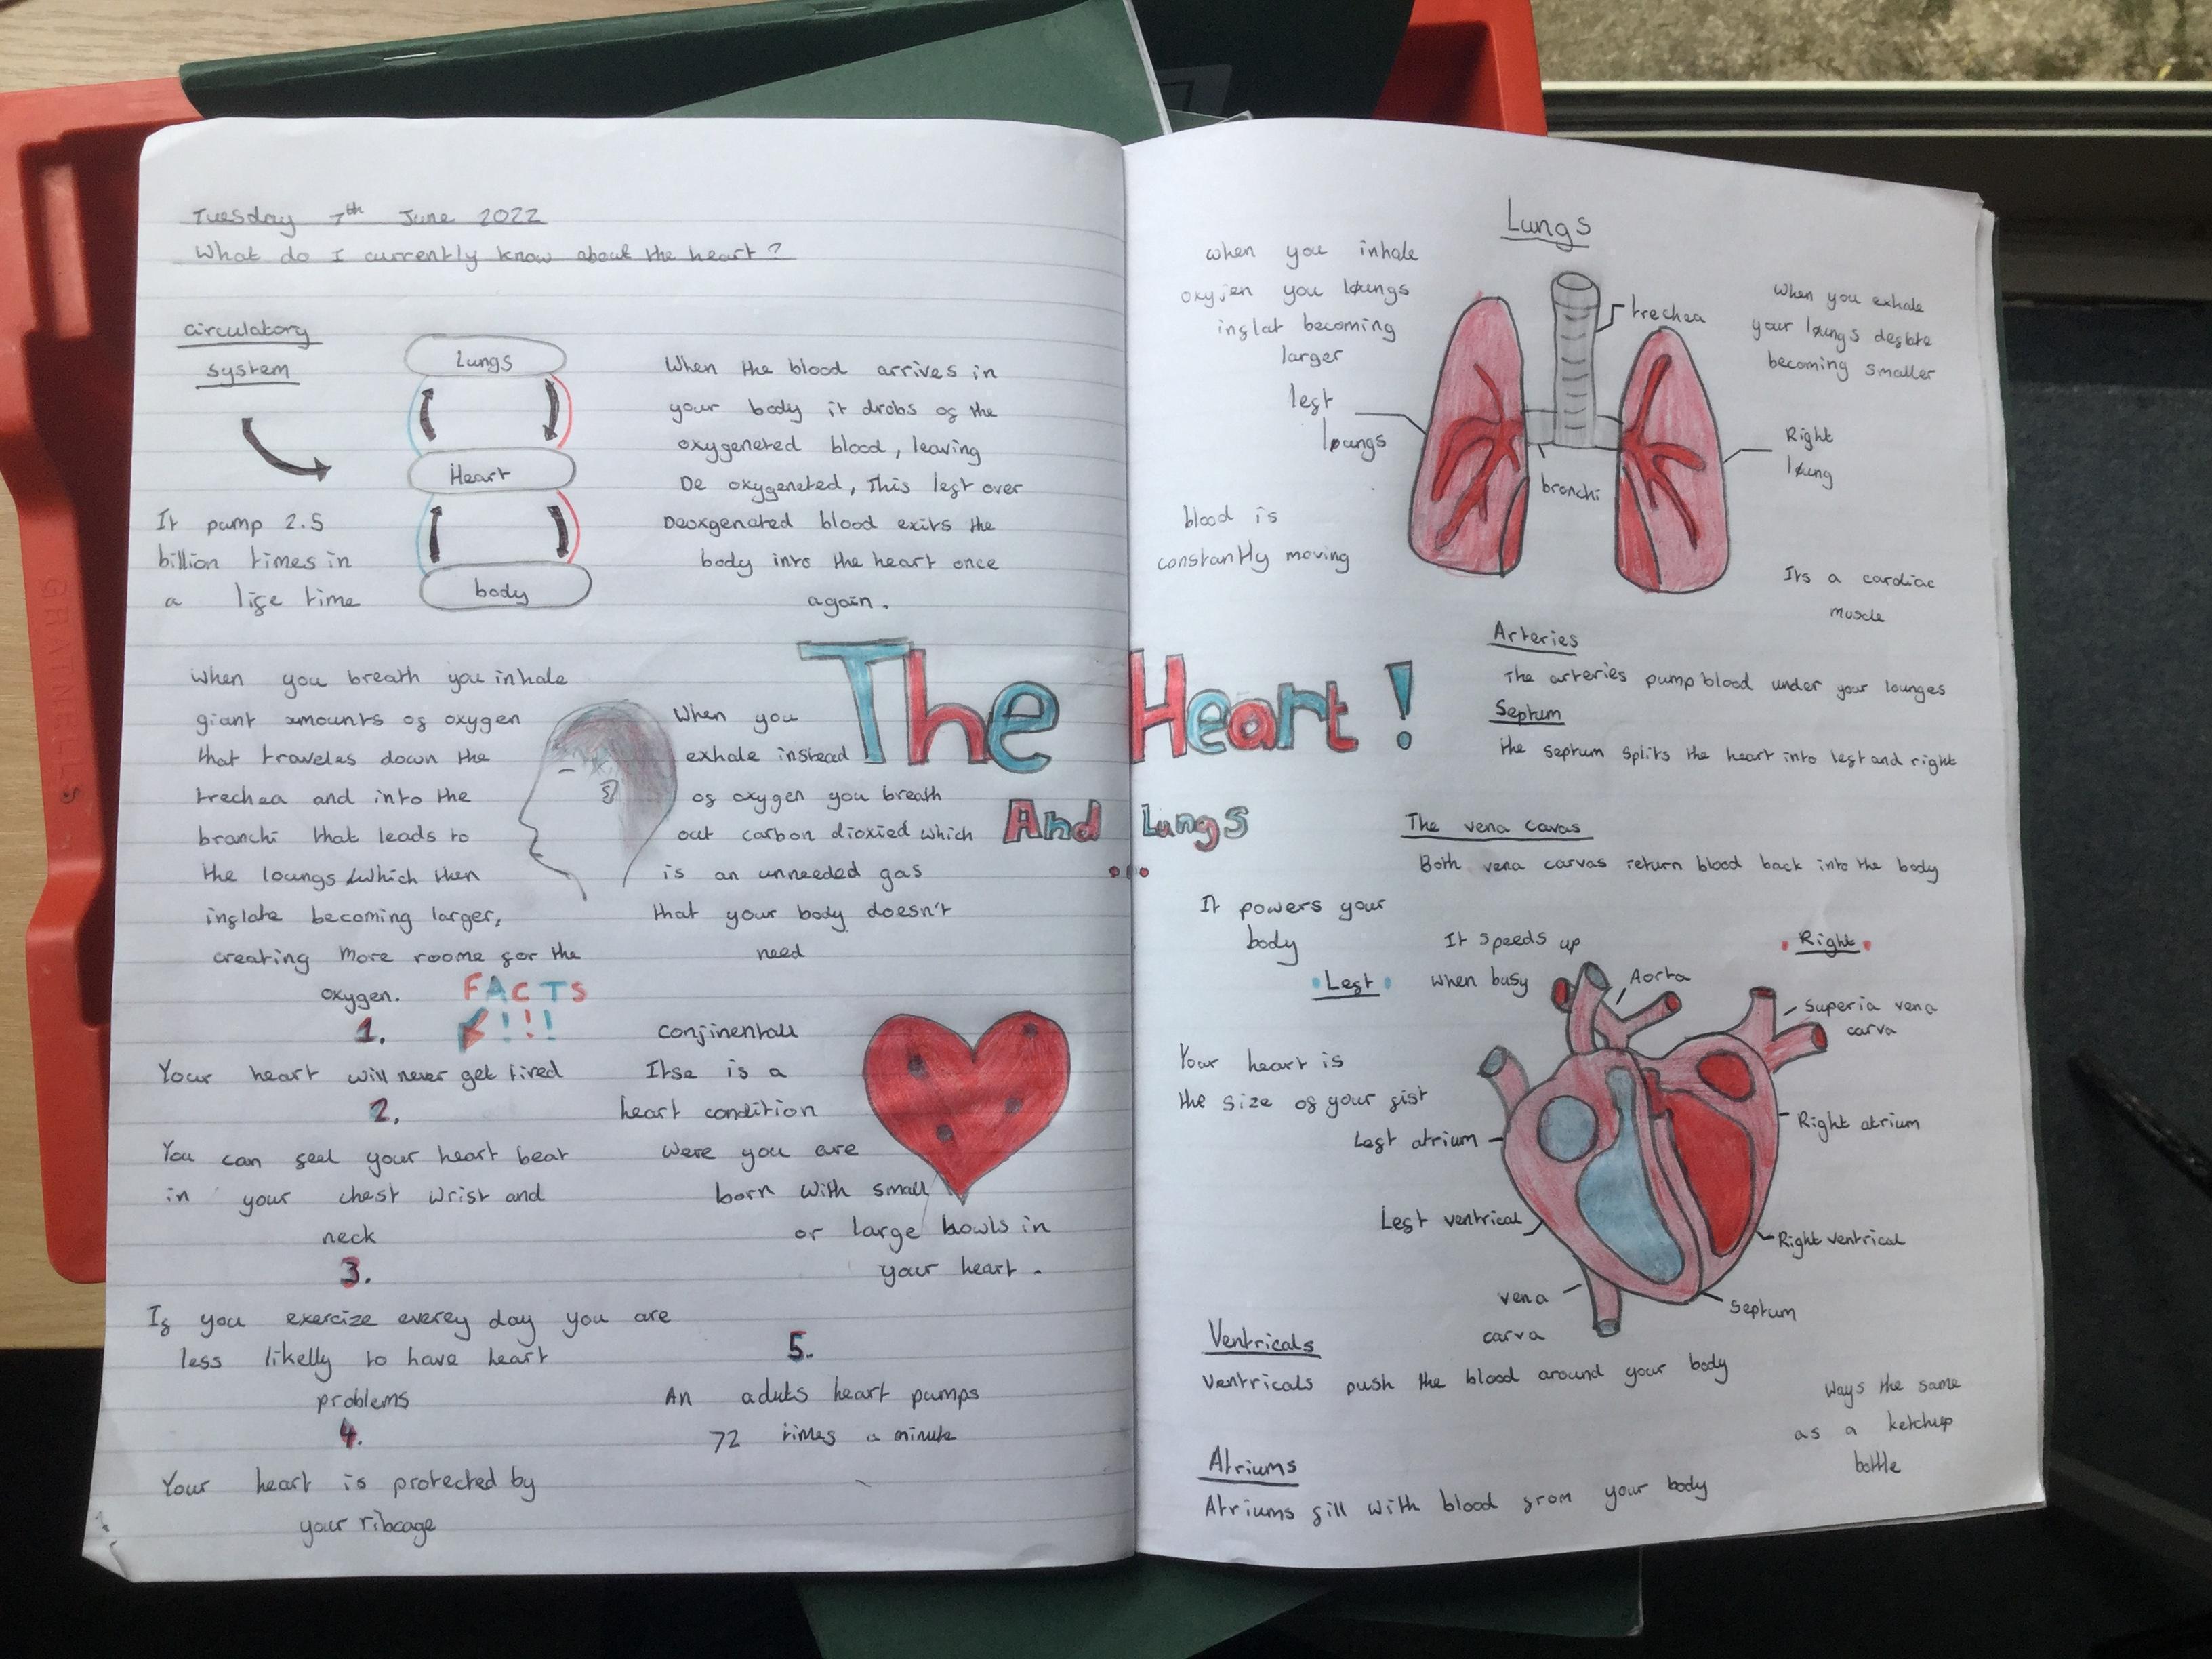 Tuesday 7th June 2022
What do I currently know about the heart?
circulatory
system
Lungs
Heart
body
It pump 2.5
billion times in
a life time
When the blood arrives in
your body it drobs of the
oxygeneted blood, leaving
De oxygeneted, This left over
Deoxgenated blood exits the
body into the heart once
again.
When you breath you inhale
giant amounts of oxygen
that traveles down the
trechea and into the
branchi that leads to
the loungs which then
inflate becoming larger,
creating more roome for the
oxygen.
When you
exhale instead
of oxygen you breath
out carbon dioxied which
is an unneeded gas
that your body doesn't
need
The Heart!
And Lungs
...
FACTS
!!!
1.
Your heart will never get tired
2.
You can feel your heart beat
in your chest wrist and
neck
3.
If you exercize everey day you are
less likelly to have heart
problems
4.
Your heart is protected by
your ribcage
conjinentall
Itse is a
heart condition
Were you are
born with small
or large howls in
your heart.
5.
An aduts heart pumps
72 times a minute
Lungs
when you inhale
oxyjen you loungs
inflat becoming
larger
trechea
When you exhale
your loungs deflate
becoming smaller
left
loungs
Right
loung
bronchi
blood is
constantly moving
Its a cardiac
muscle
Arteries
The arteries pump blood under your lounges
Septum
the septum splits the heart into left and right
The vena cavas
Both vena carvas return blood back into the body
It powers your
body
It speeds up
when busy
Left
Right
Aorta
Superia vena
carva
Your heart is
the size of your fist
Left atrium
Right atrium
Left ventrical
Right ventrical
vena
carva
septum
Ventricals
Ventricals push the blood around your body
Ways the same
as a ketchup
bottle
Atriums
Atriums fill with blood from your body
GRATNELLS